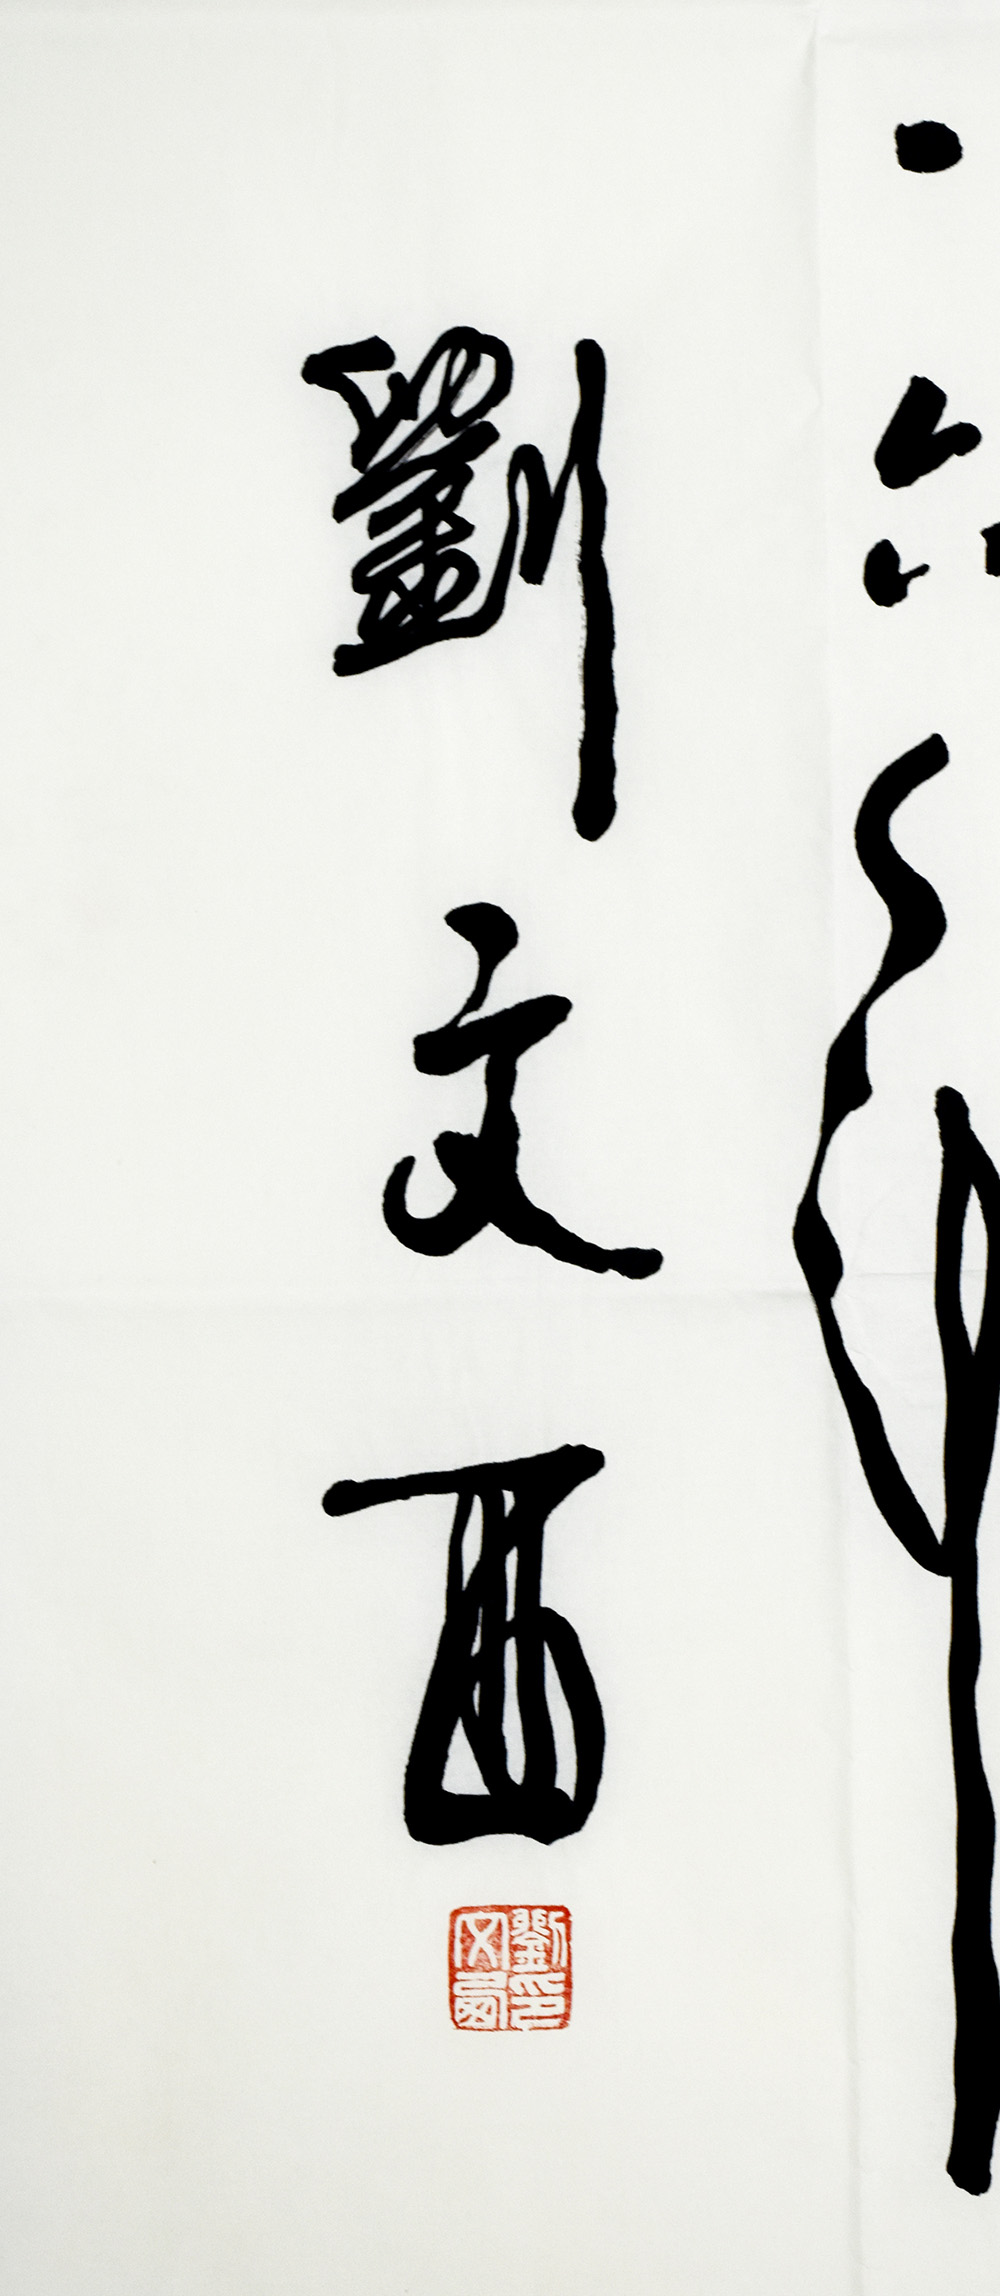 劉文西
劉印文西